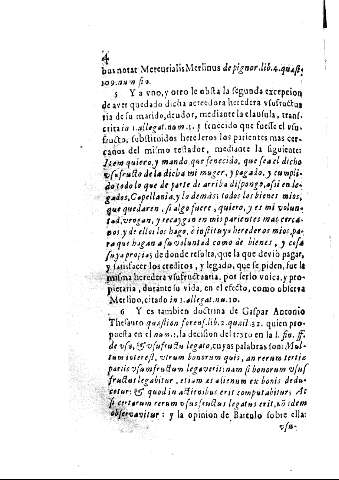 4
bus notat Mercurialis Merlinus de pignor. lib. 4. quæst.
109. num. 60.
5 Y a vno, y otro le obsta la segunda excepcion
de aver quedado dicha acreedora heredera vsufructua
ria de su marido, deudor, mediante la clausula, trans-
crita in 1. allegat. num. 1. y fenecido que fuesse el vsu-
fructo, substituidos herederos los parientes mas cer-
canos del mismo testador, mediante la siguiente:
Item quiero, y mando que fenecido, que sea el dicho
vsufructo de la dicha mi muger, y pagado, y cumpli-
do todo lo que de parte de arriba dispongo, assi en le-
gados, Capellania, y lo demàs: todos los bienes mios,
que quedaren, si algo fuere, quiero, y es mi volun-
tad, vengan, y recaygan en mis parientes mas cerca-
nos, y de ellos los hago, è instituyo herederos mios, pa-
ra que hagan a su voluntad como de bienes, y cosa
suya propia: de donde resulta, que la que deviò pagar,
y satisfacer los creditos, y legado, que se piden, fue la
misma heredera vsufructuaria, por serlo voica, y pro-
pietaria, durante su vida, en el efecto, como observa
Merlino, citado in 1. allegat. nu. 10.
6 Y es tambien doctrina de Gaspar Antonio
Thesauro quæstion forens. lib. 2. quæst. 32. quien propu-
puesta en el num. 1. la decision del texto en la l. fin. ff.
de vsu, & vsufructu legato, cuyas palabras son: Mul-
tum interest, vtrum bonorum quis, an rerum tertiæ
partis vsumfructum legaverit: nam si bonorum vsus-
fructus legabitur, etiam æs alienum ex bonis dedu-
cetur: & quod in actionibus erit computabitur: At
si certarum rerum vsusfructus legatus erit, non idem
observavitur: y la opinion de Bartulo sobre ella:
vsu-